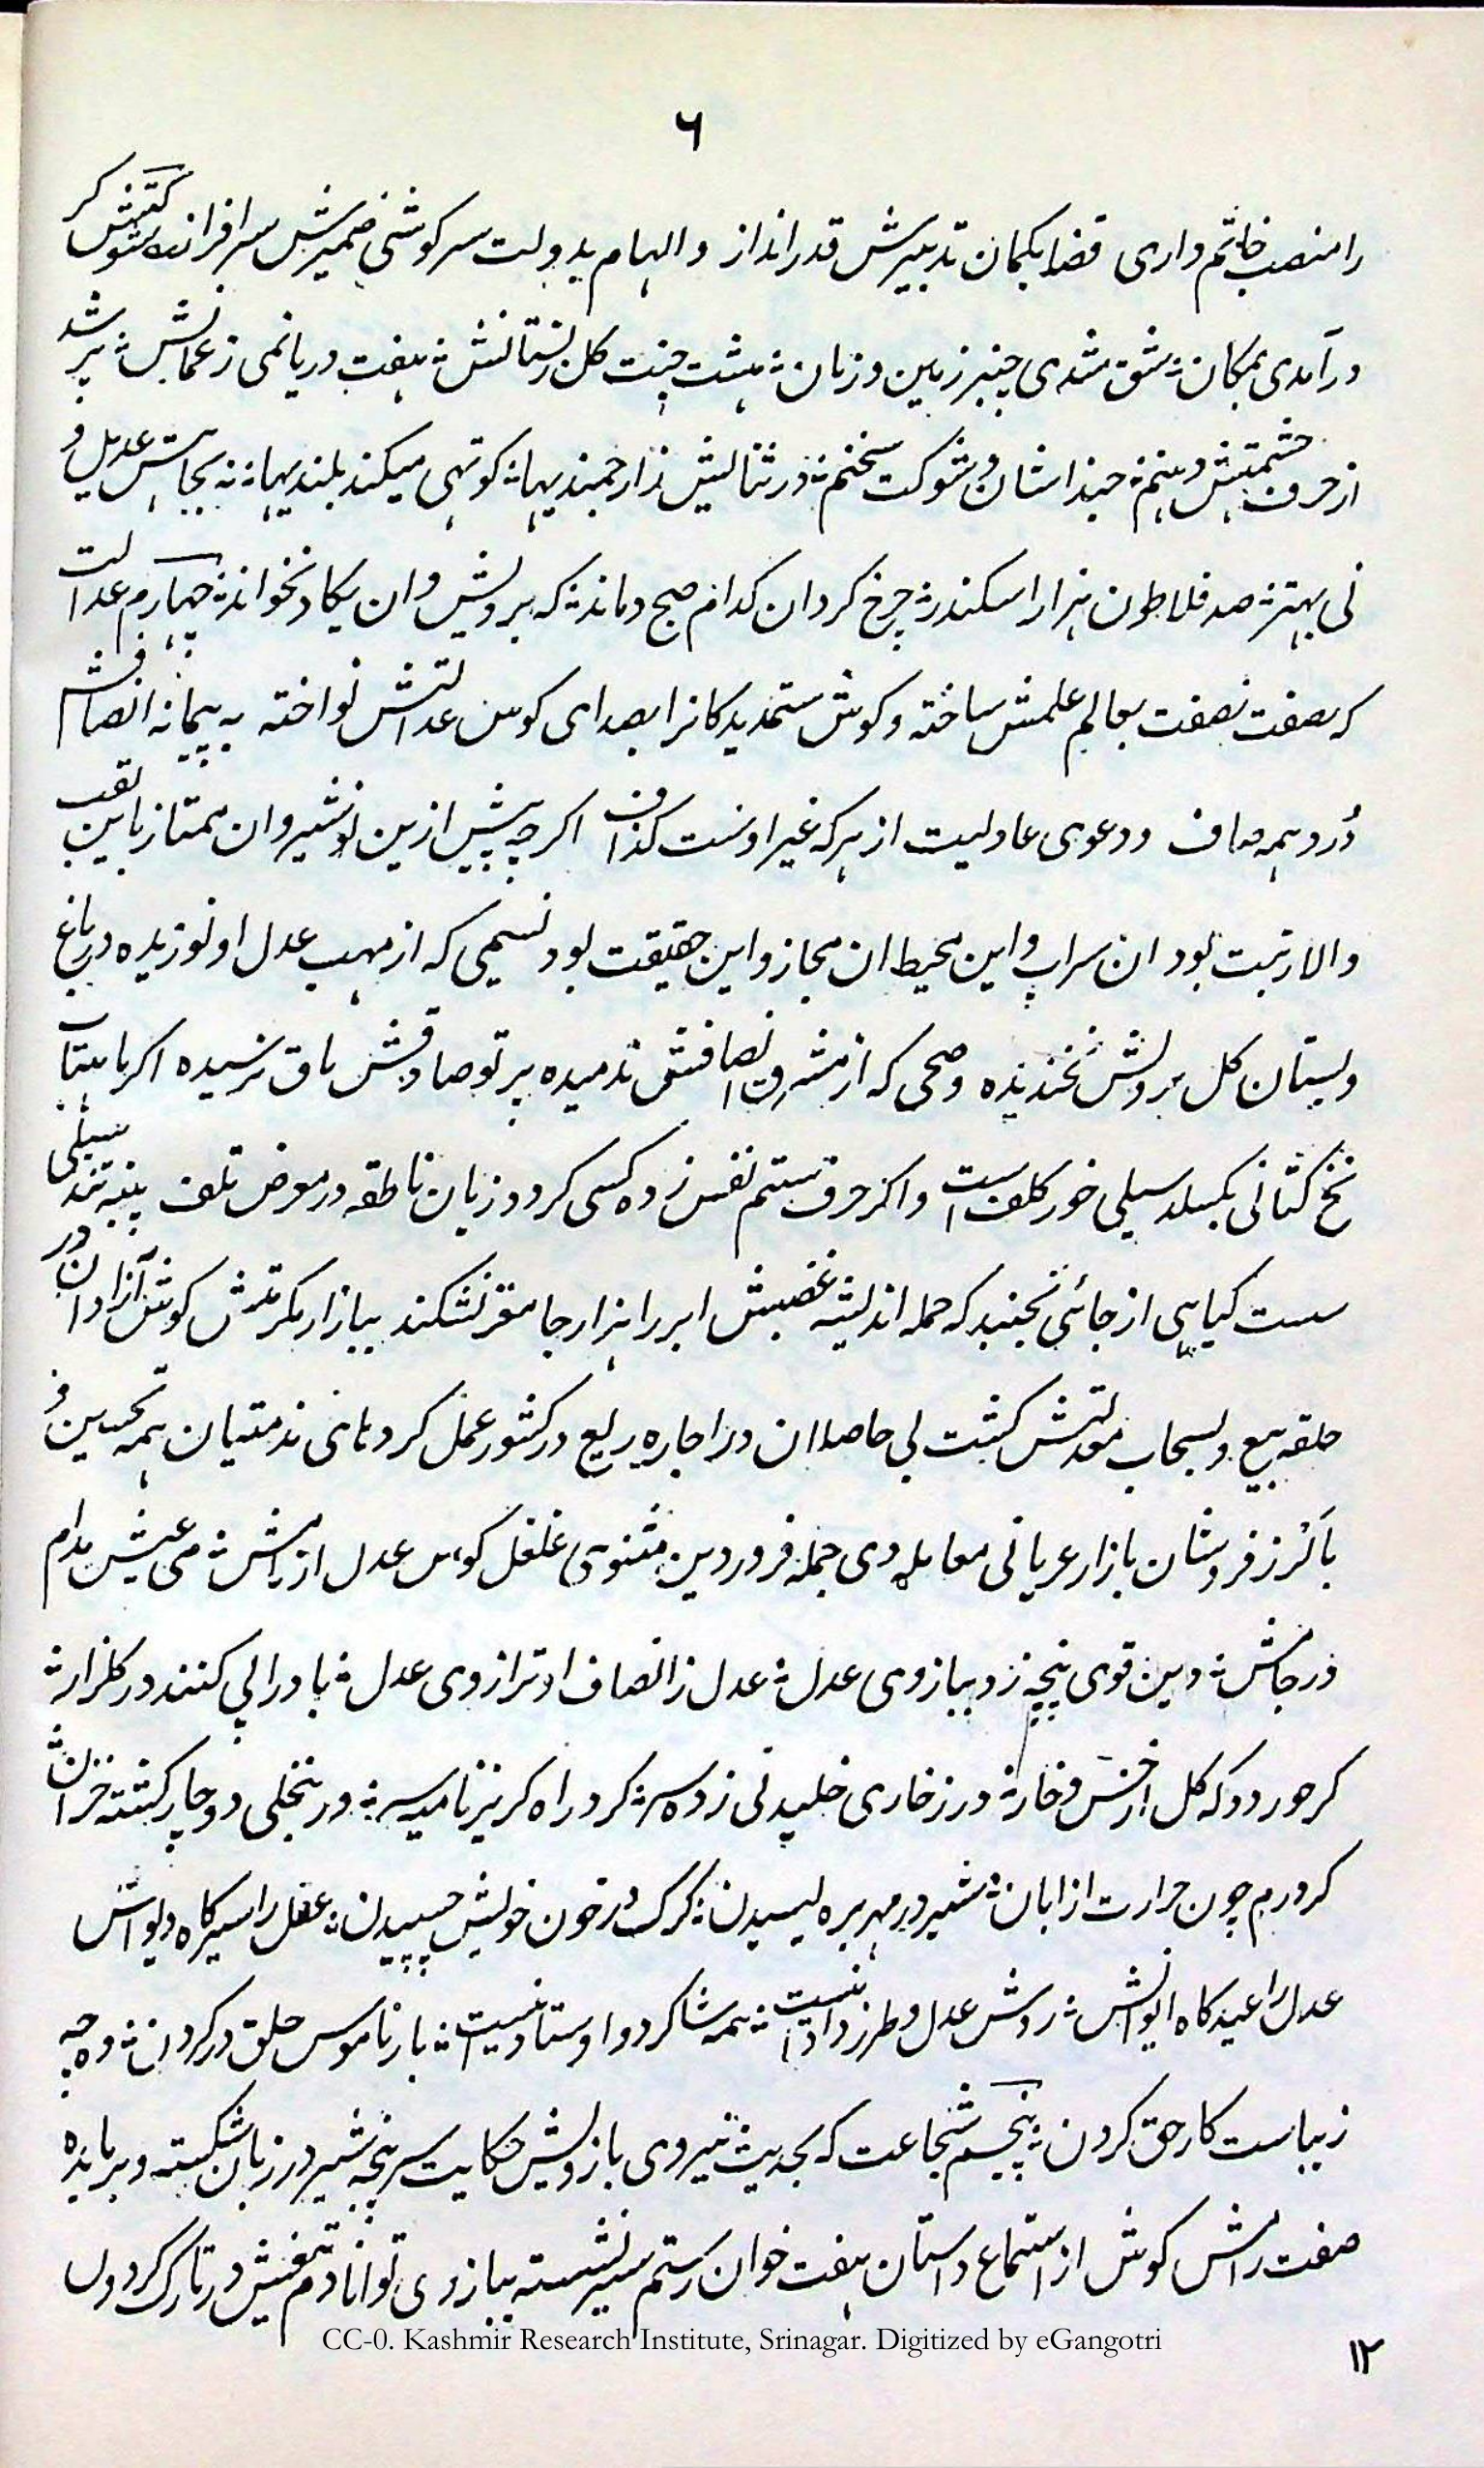 ٦
را منصب خاتم داری قضا بکمان تدبیرش قدر انداز و الهام بدولت سرکوشی ضمیرش سرافراز شوکتش کر
در آمدی بمکان ؛ شق شدی چنبر زمین و زمان ؛ هشت جنت کل زبستانش ؛ هفت دریا نمی ز عمانش ؛ پر شد
از حرف حشمتش دهنم ؛ حبذا شان و شوکت سخنم ؛ در ثنایش ز ارجمندیها ؛ کوتهی میکند بلندیها ؛ نه بجاهش عدیل و
نی بهتر ؛ صد فلاطون هزار اسکندر ؛ چرخ کردان کدام صبح دماند ؛ که برویش وان یکاد نخواند ؛ چهارم عدالت
که بصفت نصفت بعالم علمش ساخته و کوش ستمدیدکانرا بصدای کوس عدالتش نواخته به پیمانه انصافش
دُرد همه صاف و دعوی عادلیت از هرکه غیر اوست کذاف اکرچه پیش ازین نوشیروان ممتاز باین لقب
والا رتبت بود ان سراب و این محیط ان مجاز و این حقیقت بود نسیمی که از مهب عدل او نوزیده در باغ
و بستان کل برویش نخندیده و صبحی که از مشرق انصافش ندمیده پرتو صادقش بافق نرسیده اکر ماهتاب
نخ کتانی بکسلد سیلی خور کلف است و اکر حرف ستم نفس زده کسی کردد زبان ناطقه در معرض تلف پنبه تند سیلی
ست کیاهی از جائی نجنبد که حمله اندیشه غضبش ابر را هزار جا مقر نشکند ببازار مکرمتش کوش آزادان در
حلقه بیع و بسحاب معدلتش کشت بی حاصلان در اجاره ریع در کشور عمل کردهای ندمتیان همه تحسین و
با کرز فروشان بازار عریانی معامله دی جمله فروردین مثنوی غلغل کوس عدل از نامش ؛ می عیش مدام
در جامش ؛ دین قوی پنجه زد ببازوی عدل ؛ عدل ز انصاف او ترازوی عدل ؛ باد را پی کنند در کلزار ؛
کر خورد دکه کل از خس و خار ؛ در ز خاری خلیدنی زده سر ؛ کرد راه کریز نامیه سر ؛ ور بنخلی دوچار کشته خزان ؛
کرد رم چون حرارت از ابان ؛ شیر در مهر بره لیسیدن ؛ کرک در خون خویش چسپیدن ؛ عقل را سیرکاه دیوانش
عدل را عیدکاه ایوانش ؛ روش عدل و طرز داد اینست ؛ همه شاکرد و اوستاد اینست ؛ بار ناموس خلق در کردن ؛ وه چه
زیباست کار حق کردن ؛ پنجم شجاعت که بحدیث نیروی بازویش حکایت سرپنجه شیر در زبان شکسته و برباده
صفت رامش کوش از استماع داستان هفت خوان رستم سیر نشسته ببازوی توانا دم تیغش در تارک کردون
CC-0. Kashmir Research Institute, Srinagar. Digitized by eGangotri
١٢